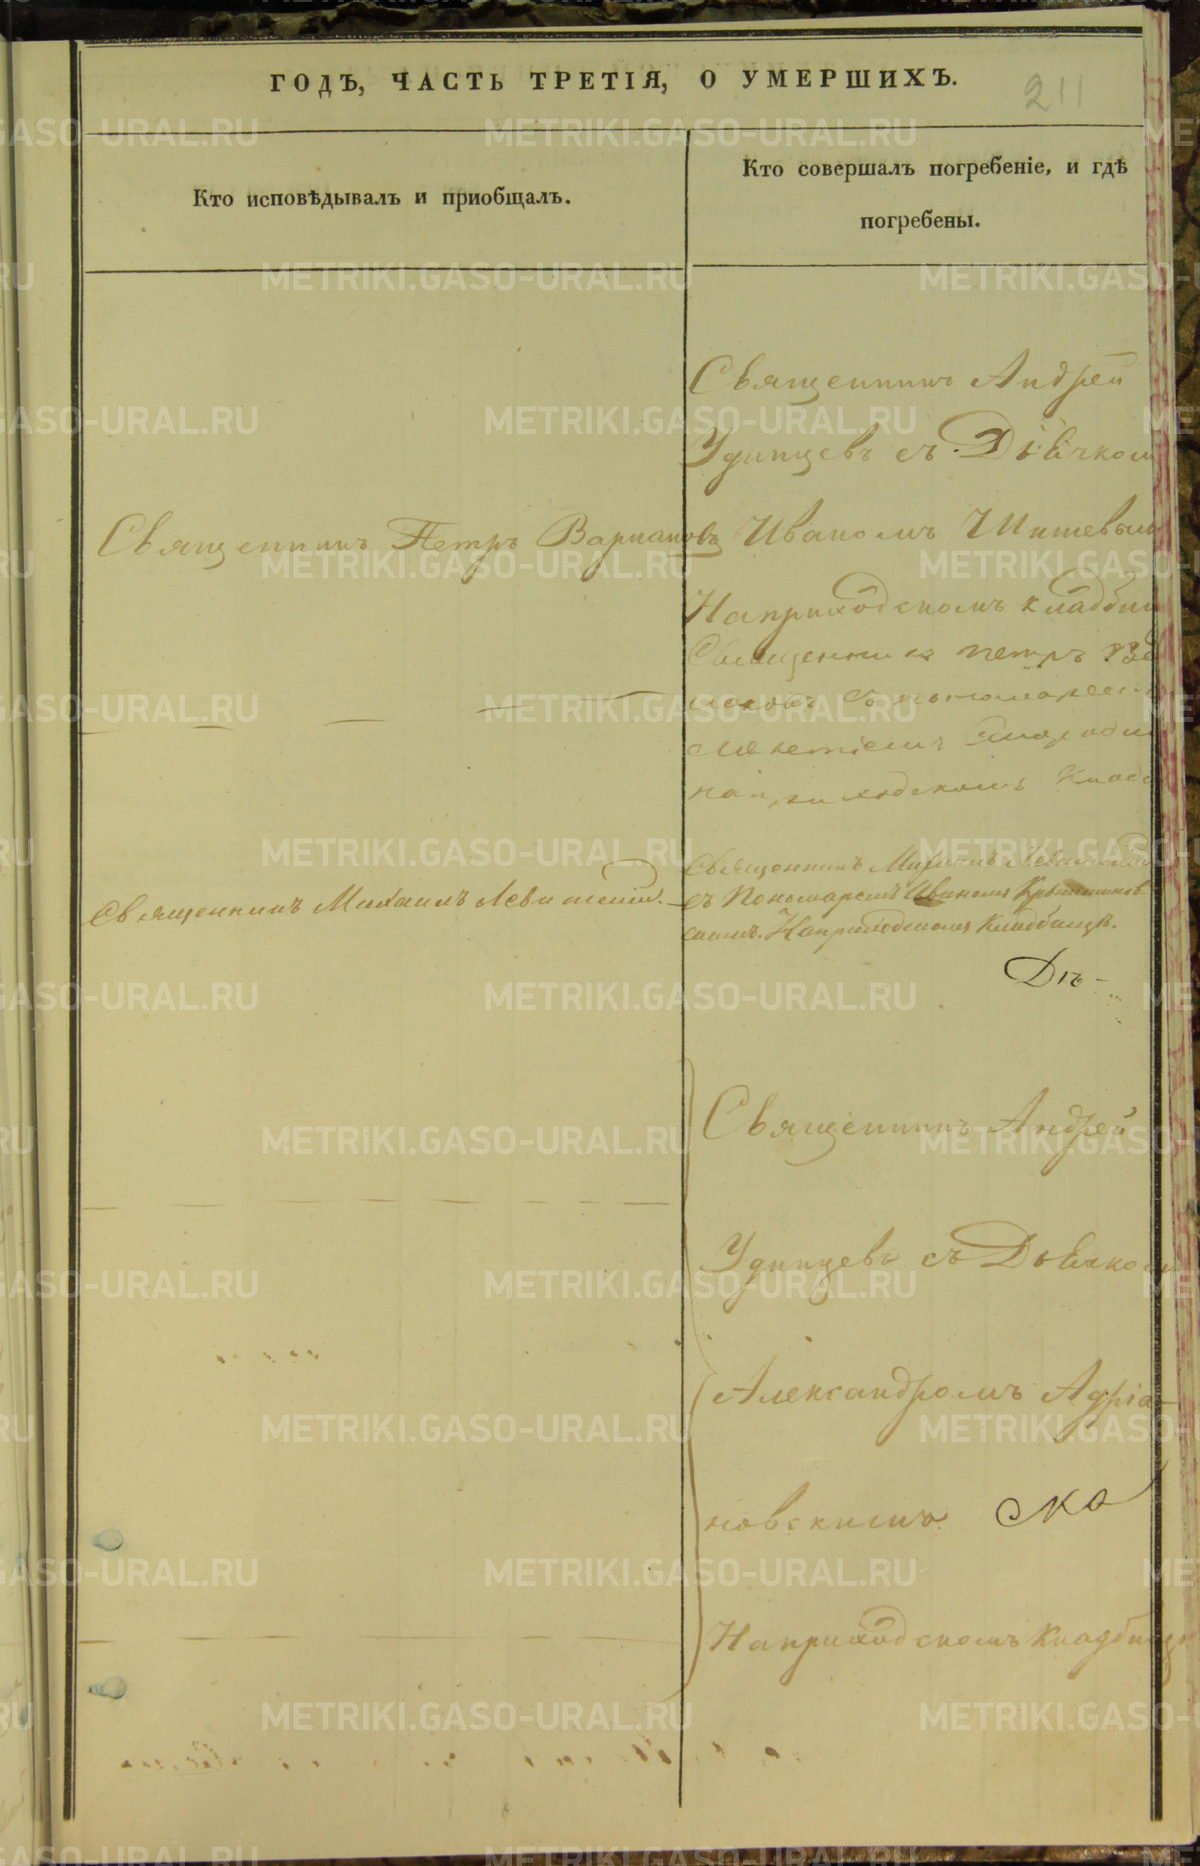 ГОДЪ, ЧАСТЬ ТРЕТІЯ, О УМЕРШИХЪ.
211
Кто исповѣдывалъ и пріобщалъ.
Кто совершалъ погребеніе, и гдѣ
погребены.
Священникъ Андрей
Удинцевъ съ Дьячком
Священникъ Петръ
Иваномъ
На приходскомъ кладби
Священникъ Петръ
съ пономарем
на приходскомъ Кладб
Священникъ Михаилъ Левитскій.
Священникъ Михаилъ Левитскій
съ Пономаремъ Иваномъ
На приходскомъ Кладбищѣ.
Дь-
Священникъ Андрей
Удинцевъ съ Дьячком
Александромъ Адріа-
новскимъ
На приходскомъ Кладбищ
METRIKI.GASO-URAL.RU